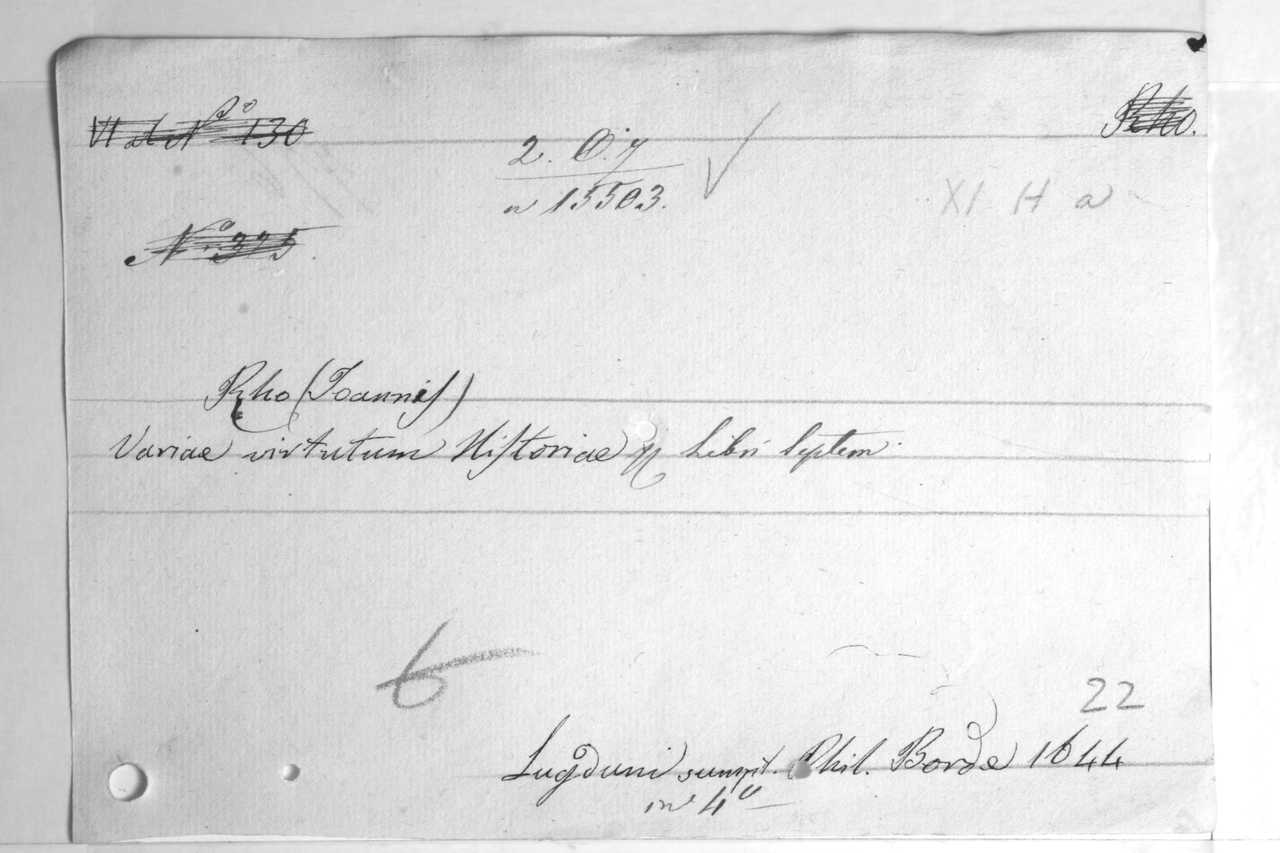 VI d N° 130
Rho.
2. O. y
n 15503.
XI H a
N° 325.
Rho (Joannis)
Variae virtutum Historiae Libri septem.
6
22
Lugduni sumpt. Phil. Borde 1644
in 4°